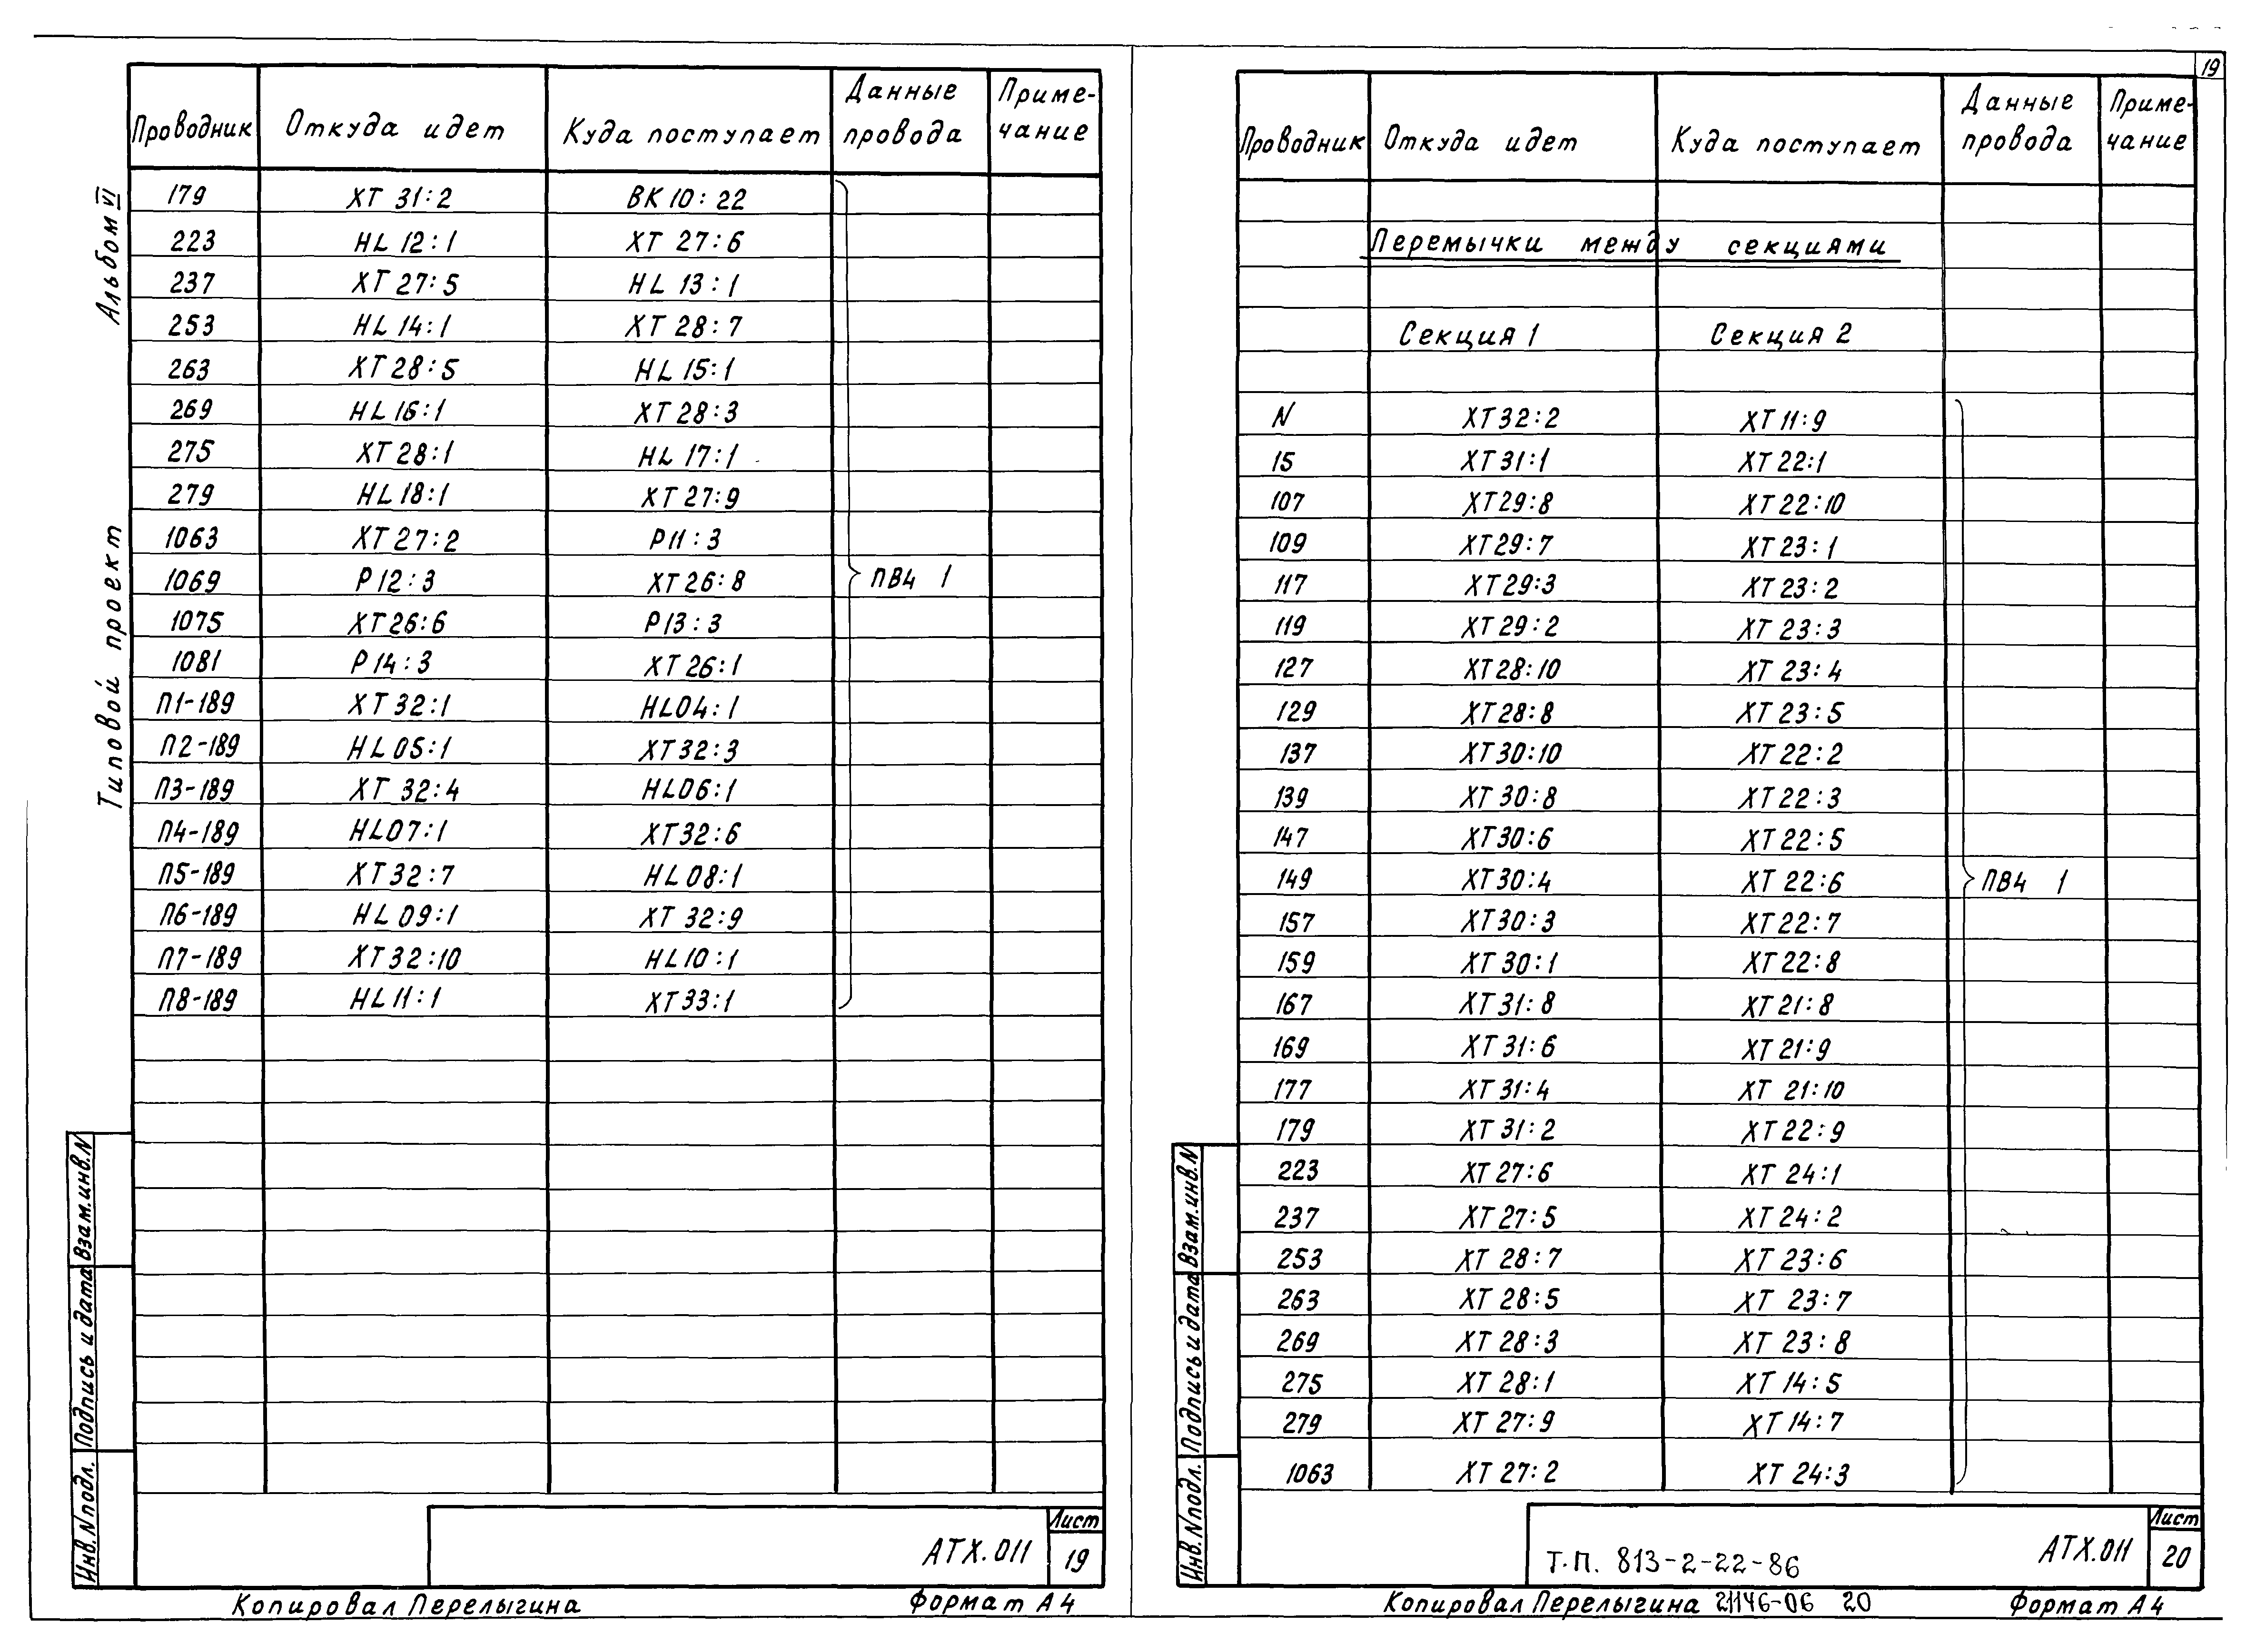 19
Альбом VI
Типовой проект
Проводник Откуда идет Куда поступает Данные провода Приме-чание
179 ХТ 31:2 ВК10:22
223 HL 12:1 ХТ 27:6
237 ХТ 27:5 HL 13:1
253 HL 14:1 ХТ 28:7
263 ХТ 28:5 HL 15:1
269 HL 16:1 ХТ 28:3
275 ХТ 28:1 HL 17:1
279 HL 18:1 ХТ 27:9
1063 ХТ 27:2 Р11:3
1069 Р12:3 ХТ 26:8 ПВ4 1
1075 ХТ 26:6 Р13:3
1081 Р14:3 ХТ 26:1
П1-189 ХТ 32:1 HL04:1
П2-189 HL05:1 ХТ 32:3
П3-189 ХТ 32:4 HL06:1
П4-189 HL07:1 ХТ 32:6
П5-189 ХТ 32:7 HL08:1
П6-189 HL09:1 ХТ 32:9
П7-189 ХТ 32:10 HL10:1
П8-189 HL11:1 ХТ 33:1
Взам.инв.N
Подпись и дата
Инв.N подл.
АТХ.011
Лист
19
Копировал Перелыгина Формат А4
Проводник Откуда идет Куда поступает Данные провода Приме-чание
Перемычки между секциями
Секция 1 Секция 2
N ХТ32:2 ХТ11:9
15 ХТ31:1 ХТ22:1
107 ХТ29:8 ХТ22:10
109 ХТ29:7 ХТ23:1
117 ХТ29:3 ХТ23:2
119 ХТ29:2 ХТ23:3
127 ХТ28:10 ХТ23:4
129 ХТ28:8 ХТ23:5
137 ХТ30:10 ХТ22:2
139 ХТ30:8 ХТ22:3
147 ХТ30:6 ХТ22:5
149 ХТ30:4 ХТ22:6 ПВ4 1
157 ХТ30:3 ХТ22:7
159 ХТ30:1 ХТ22:8
167 ХТ31:8 ХТ21:8
169 ХТ31:6 ХТ21:9
177 ХТ31:4 ХТ21:10
179 ХТ31:2 ХТ22:9
223 ХТ27:6 ХТ24:1
237 ХТ27:5 ХТ24:2
253 ХТ28:7 ХТ23:6
263 ХТ28:5 ХТ23:7
269 ХТ28:3 ХТ23:8
275 ХТ28:1 ХТ14:5
279 ХТ27:9 ХТ14:7
1063 ХТ27:2 ХТ24:3
Взам.инв.N
Подпись и дата
Инв.N подл.
Т.П. 813-2-22-86
АТХ.011
Лист
20
Копировал Перелыгина 21146-06 20 Формат А4